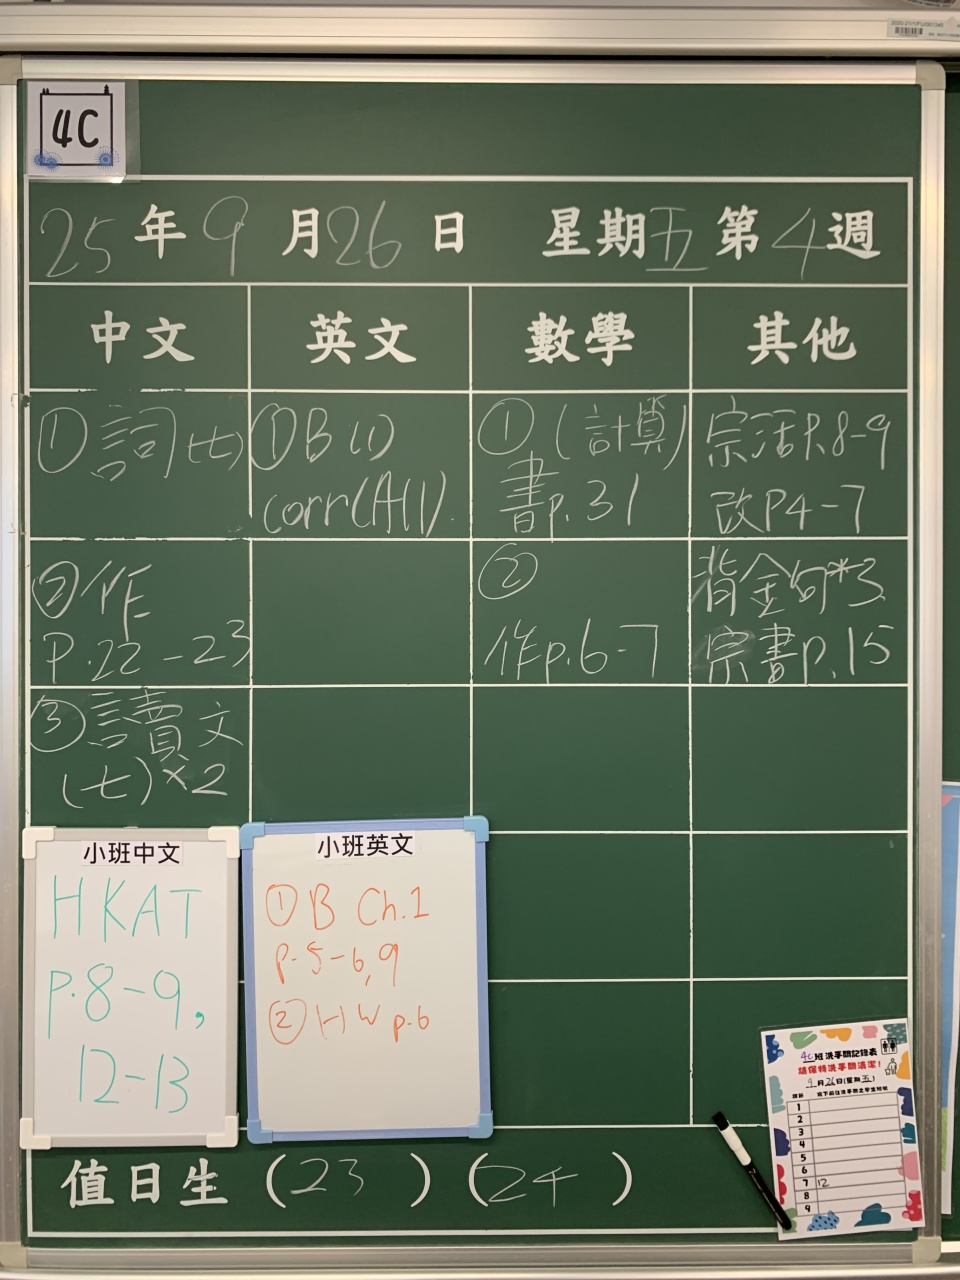 4C
25年9月26日 星期五 第4週
中文 英文 數學 其他
①詞(七)
①B(1)
corr(A(1).
①(計算)
書p.31
宗活P.8-9
改P4-7
②作
P.22-23
②
作p.6-7
背金句*3
宗書p.15
③讀文
(七)×2
小班中文
HKAT
p.8-9,
12-13
小班英文
①B Ch.1
p.5-6,9
②HW p.6
4C班洗手間記錄表
請保持洗手間清潔!
9月26日(星期五)
1
2
3
4
5
6
7 12
8
9
值日生(23)(24)